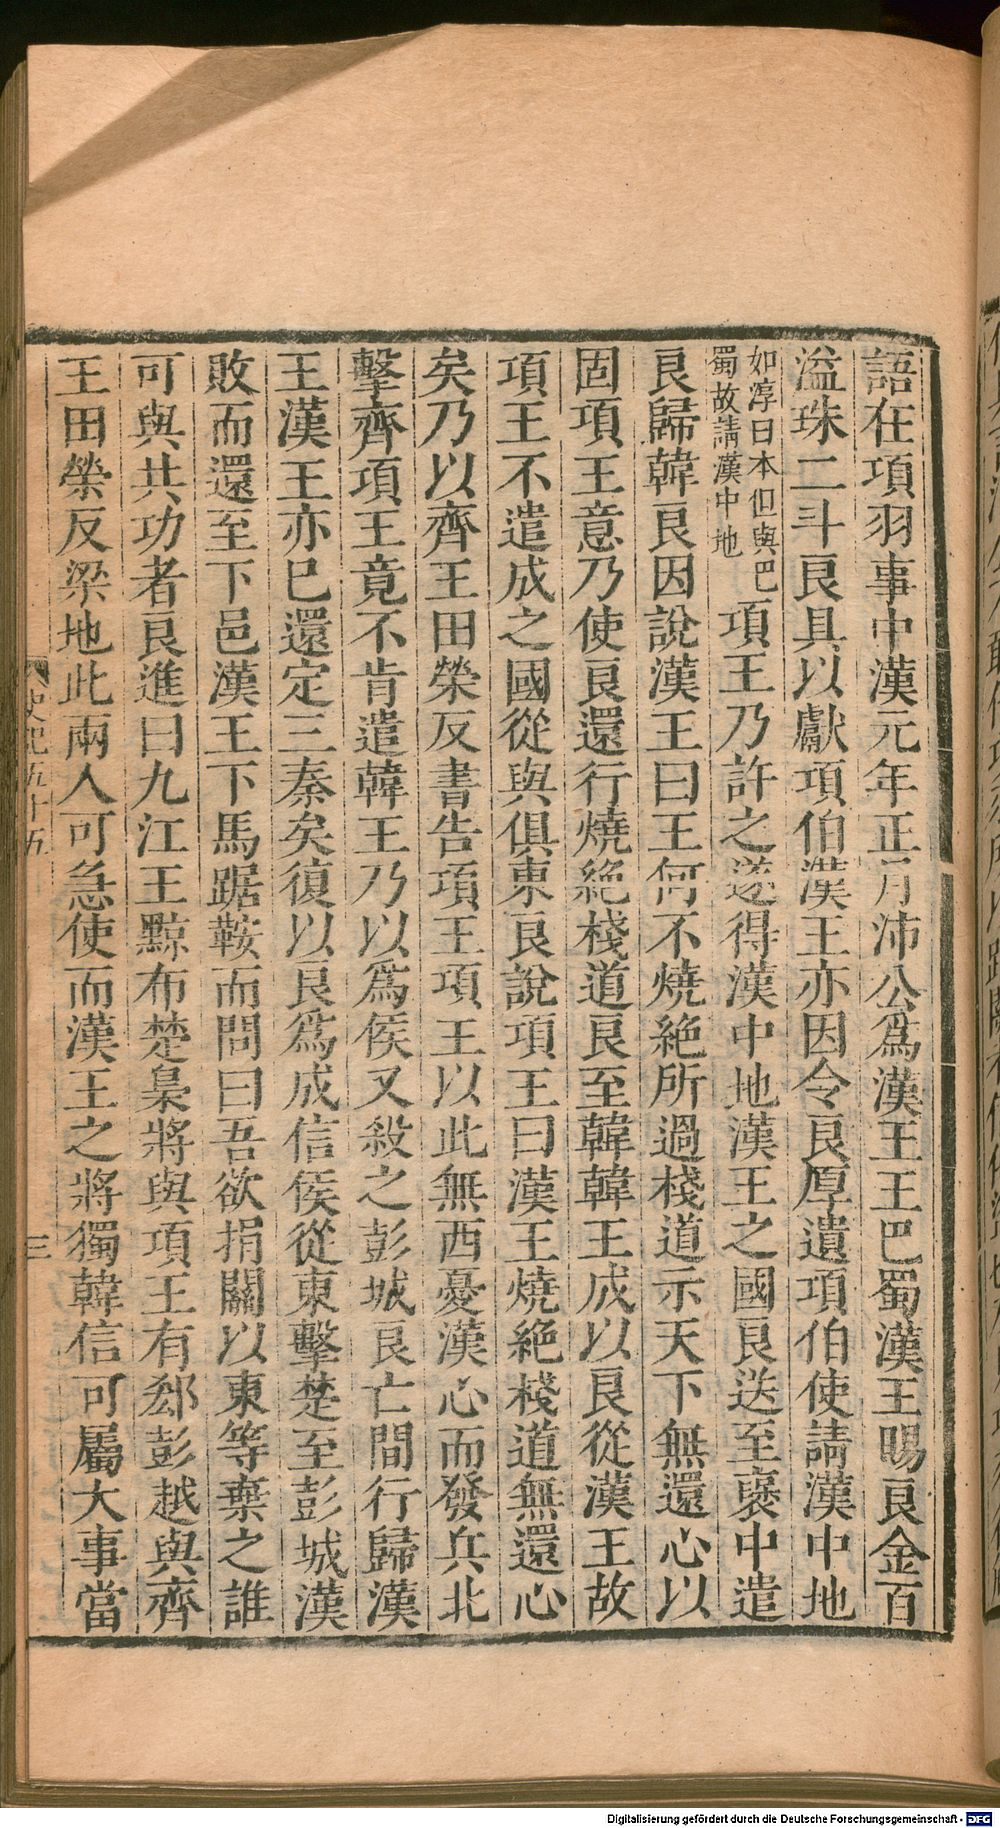 語在項羽事中漢元年正月沛公爲漢王王巴蜀漢王賜良金百
溢珠二斗良具以獻項伯漢王亦因令良厚遺項伯使請漢中地
如淳曰本但與巴
蜀故請漢中地
項王乃許之遂得漢中地漢王之國良送至褒中遣
良歸韓良因說漢王曰王何不燒絕所過棧道示天下無還心以
固項王意乃使良還行燒絕棧道良至韓韓王成以良從漢王故
項王不遣成之國從與俱東良說項王曰漢王燒絕棧道無還心
矣乃以齊王田榮反書告項王項王以此無西憂漢心而發兵北
擊齊項王竟不肯遣韓王乃以爲侯又殺之彭城良亡間行歸漢
王漢王亦已還定三秦矣復以良爲成信侯從東擊楚至彭城漢
敗而還至下邑漢王下馬踞鞍而問曰吾欲捐關以東等棄之誰
可與共功者良進曰九江王黥布楚梟將與項王有郄彭越與齊
王田榮反梁地此兩人可急使而漢王之將獨韓信可屬大事當
史記五十五
三
Digitalisierung gefördert durch die Deutsche Forschungsgemeinschaft - DFG